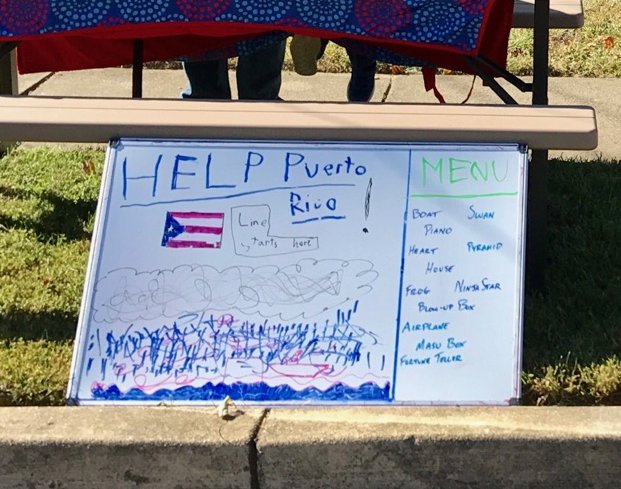 HELP Puerto
Rico!
Line
starts here
MENU
BOAT SWAN
PIANO
HEART PYRAMID
HOUSE
FROG NINJA STAR
BLOW-UP BOX
AIRPLANE
MASU BOX
FORTUNE TELLER